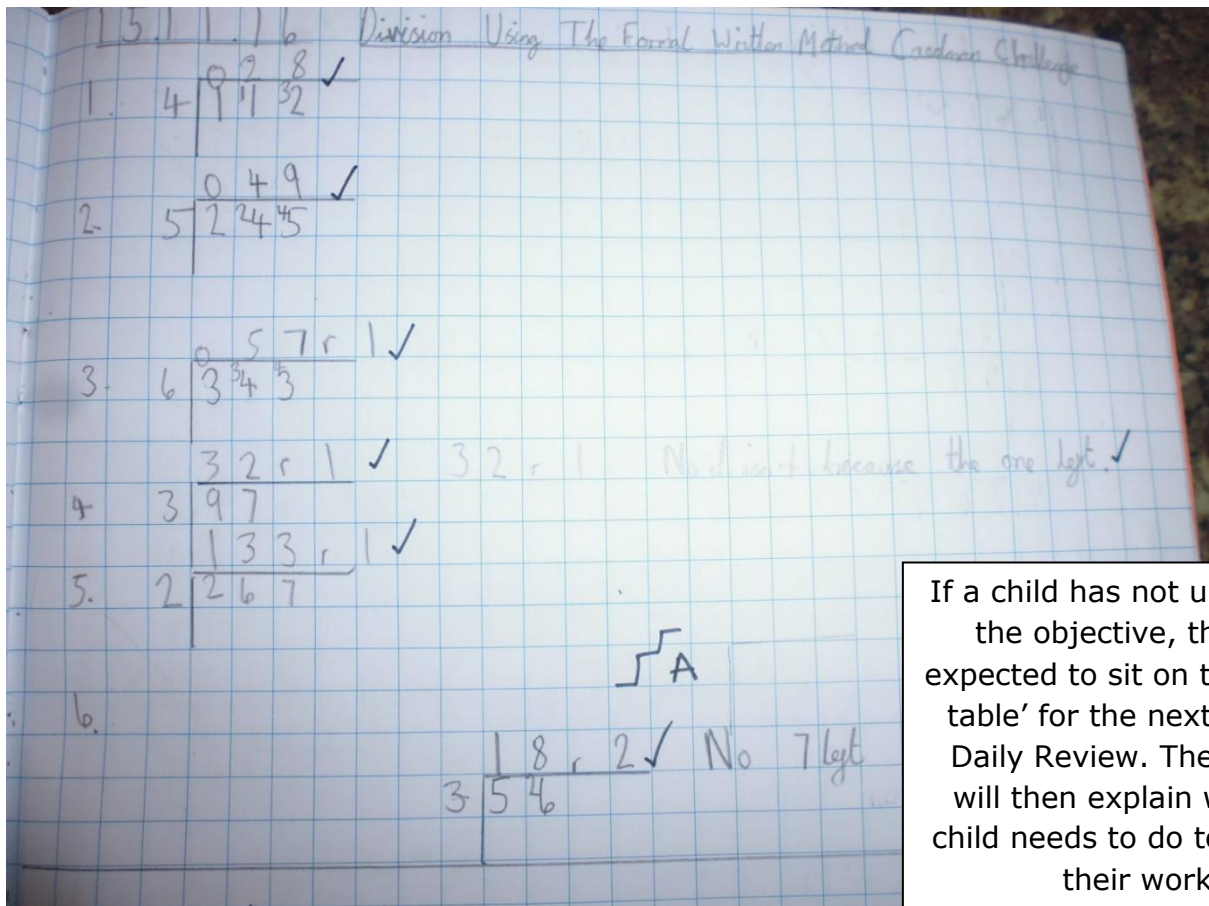 15.11.16 Division Using The Formal Written Method Caedmon Challenge
0 2 8 ✓
1. 4 1 11 32
0 4 9 ✓
2. 5 2 24 45
0 5 7 r 1 ✓
3. 6 3 34 43
3 2 r 1 ✓ 3 2 r 1 No it isn't because the one left. ✓
4 3 9 7
1 3 3 r 1 ✓
5. 2 2 6 7
A
6.
1 8 r 2 ✓ No 7 left
3 5
If a child has not u
the objective, th
expected to sit on t
table’ for the next
Daily Review. The
will then explain w
child needs to do to
their work